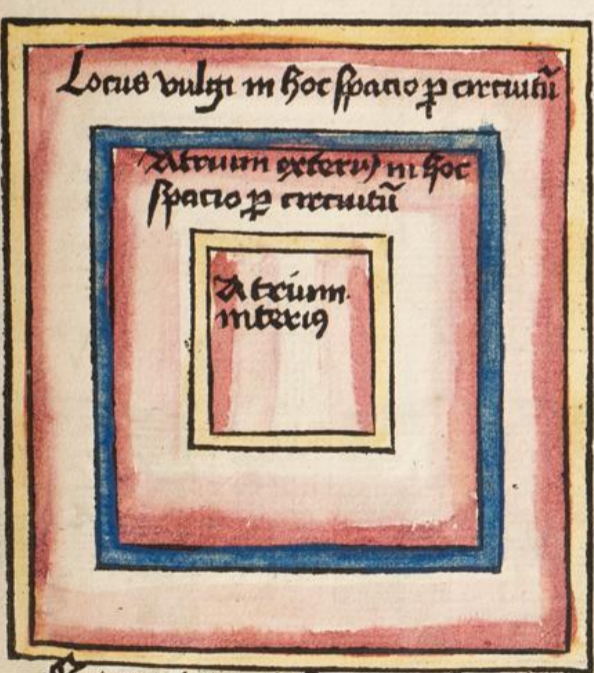 Locus vulgi in hoc spacio ꝑ circuitū
Atrium exteriꝰ in hoc
spacio ꝑ circuitū
Atrium
interiꝰ